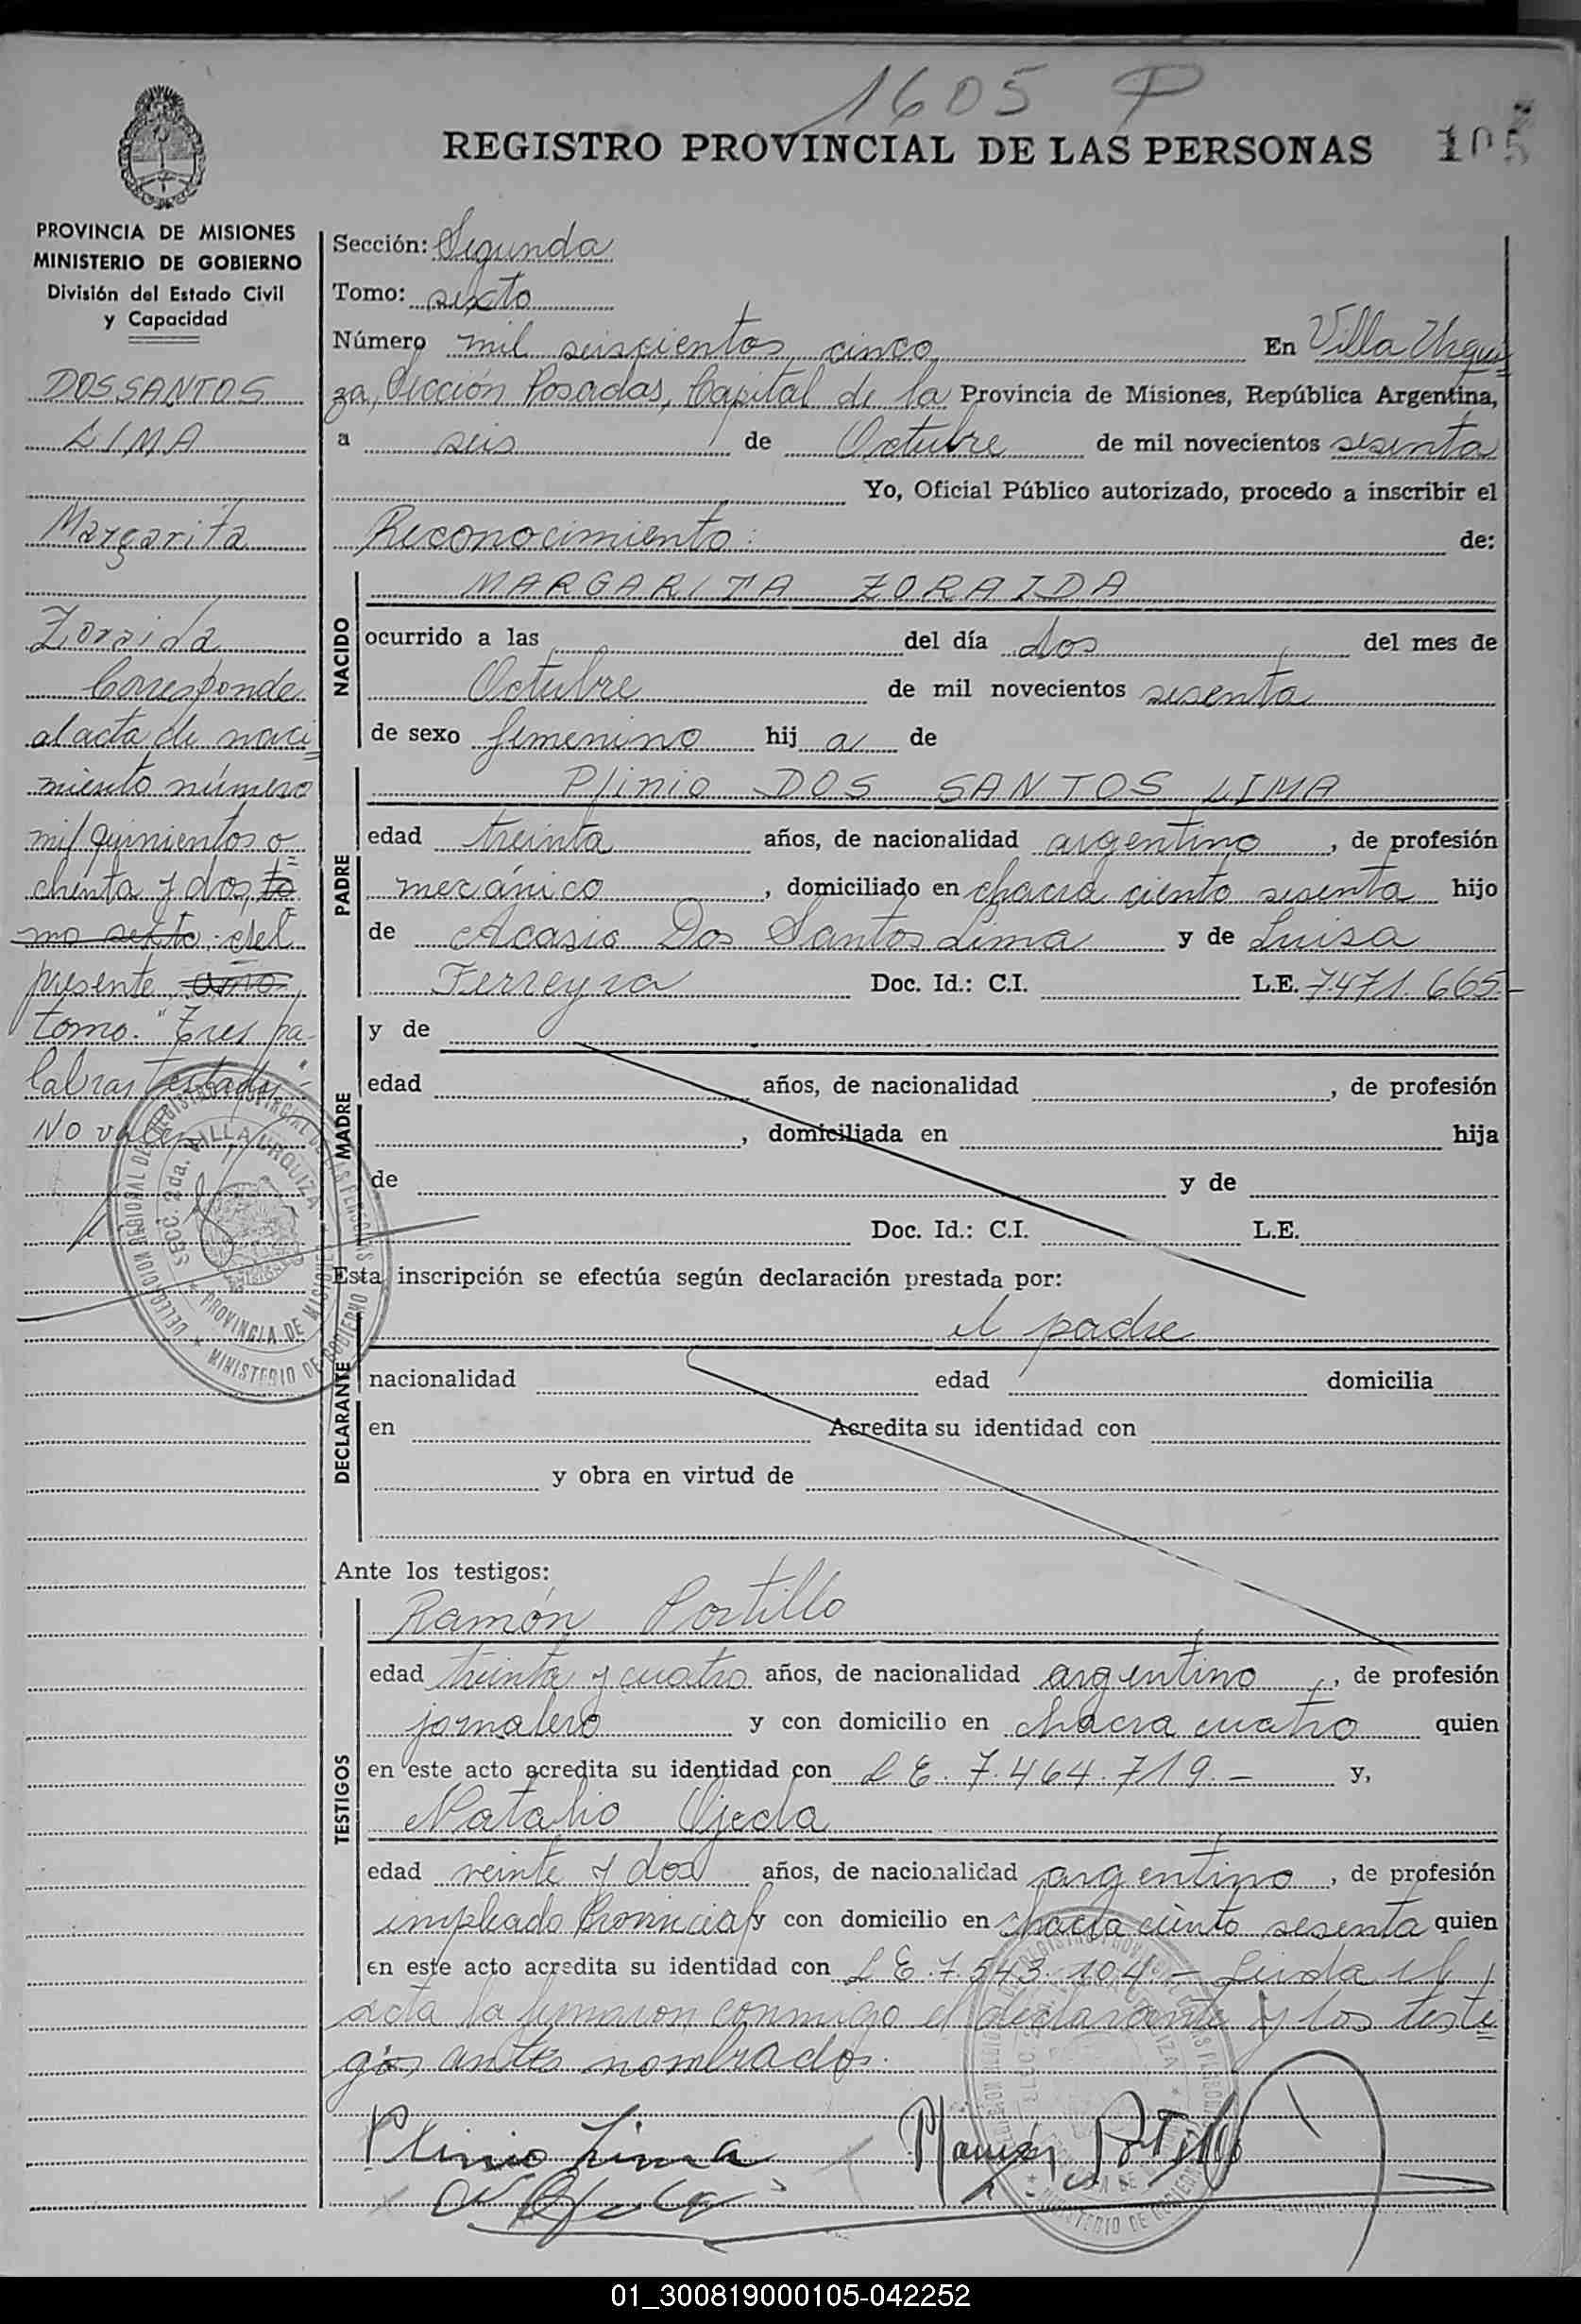 1605 P
REGISTRO PROVINCIAL DE LAS PERSONAS 105
PROVINCIA DE MISIONES
MINISTERIO DE GOBIERNO
División del Estado Civil
y Capacidad
DOS SANTOS
LIMA
Margarita
Zoraida
Corresponde
al acta de naci=
miento número
mil quinientos o=
chenta y dos, to=
mo sexto. del
presente año
tomo. "Tres pa-
labras testadas"
No valen
Sección: Segunda
Tomo: sexto
Número mil seiscientos cinco En Villa Urqui=
za, Sección Posadas, Capital de la Provincia de Misiones, República Argentina,
a seis de Octubre de mil novecientos sesenta
Yo, Oficial Público autorizado, procedo a inscribir el
Reconocimiento: de:
NACIDO
MARGARITA ZORAIDA
ocurrido a las del día dos del mes de
Octubre de mil novecientos sesenta
de sexo femenino hij a de
PADRE
Plinio DOS SANTOS LIMA
edad treinta años, de nacionalidad argentino, de profesión
mecánico, domiciliado en chacra ciento sesenta hijo
de Acasio Dos Santos Lima y de Luisa
Ferreyra Doc. Id.: C.I. L.E. 7.471.665-
MADRE
y de
edad años, de nacionalidad , de profesión
, domiciliada en hija
de y de
Doc. Id.: C.I. L.E.
Esta inscripción se efectúa según declaración prestada por:
DECLARANTE
el padre
nacionalidad edad domicilia
en Acredita su identidad con
y obra en virtud de
Ante los testigos:
TESTIGOS
Ramón Portillo
edad treinta y cuatro años, de nacionalidad argentino, de profesión
jornalero y con domicilio en chacra cuatro quien
en este acto acredita su identidad con L E. 7.464.719.- y,
Natalio Ojeda
edad veinte y dos años, de nacionalidad argentino, de profesión
empleado Provincial y con domicilio en chacra ciento sesenta quien
en este acto acredita su identidad con L E. 7.543.104 - Leida el
acta la firmaron conmigo el declarante y los testi=
gos antes nombrados.
Plinio Lima Ramón Portillo
N Ojeda
DELEGACION REGIONAL DEL REGISTRO PROVINCIAL DE LAS PERSONAS
SECC. 2da. VILLA URQUIZA
PROVINCIA DE MISIONES
MINISTERIO DE GOBIERNO
01_300819000105-042252